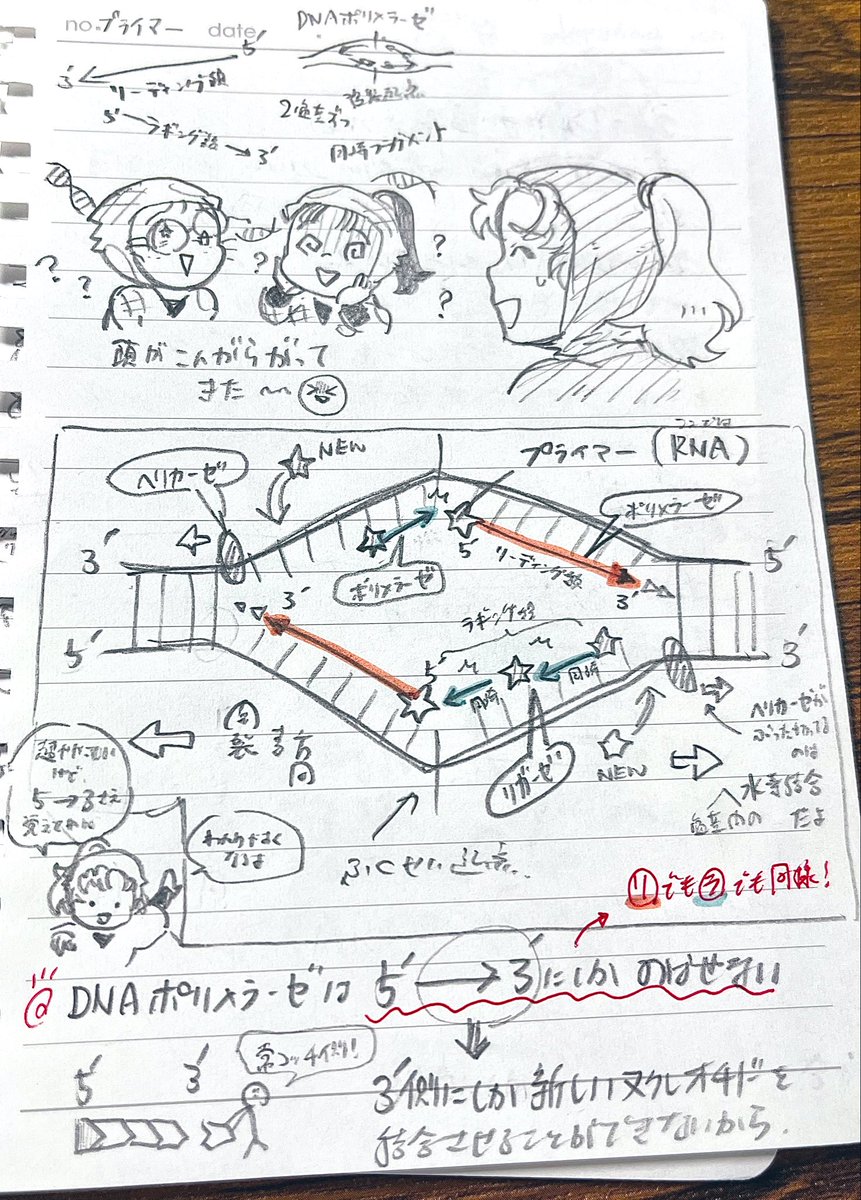 no. プライマー date
DNAポリメラーゼ
5'
3'
リーディング鎖
5' ラギング鎖 → 3'
2
岡崎フラグメント
? ? ? ? ?
頭がこんがらがって
きた〜〜
NEW
プライマー (RNA)
ヘリカーゼ
ポリメラーゼ
3' 5'
5'
リーディング鎖
ポリメラーゼ
3' 3'
ラギング鎖
5'
岡崎 岡崎
5' 3'
ヘリカーゼが
ぶった切ってる
のは
水素結合
だよ
リガーゼ
NEW
5→3さえ
わからなく
なるよ
ふくせい
リでもラでも同様!
DNAポリメラーゼは 5' → 3' にしかのばせない
5' 3'
常にコッチ側!
3'側にしか新しいヌクレオチドを
結合させることができないから.